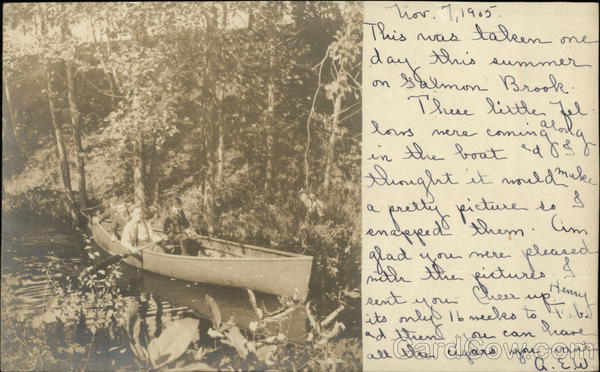 Nov. 7, 1905.
This was taken one
day this summer
on Salmon Brook.
These little fel
lows were coming along
in the boat and I
thought it would make
a pretty picture so I
snapped them. Am
glad you were pleased
with the pictures I
sent you Cheer up Henry
its only 16 weeks to Feb.
and then you can have
all the cigars you want
A. E. W.
CardCow.com